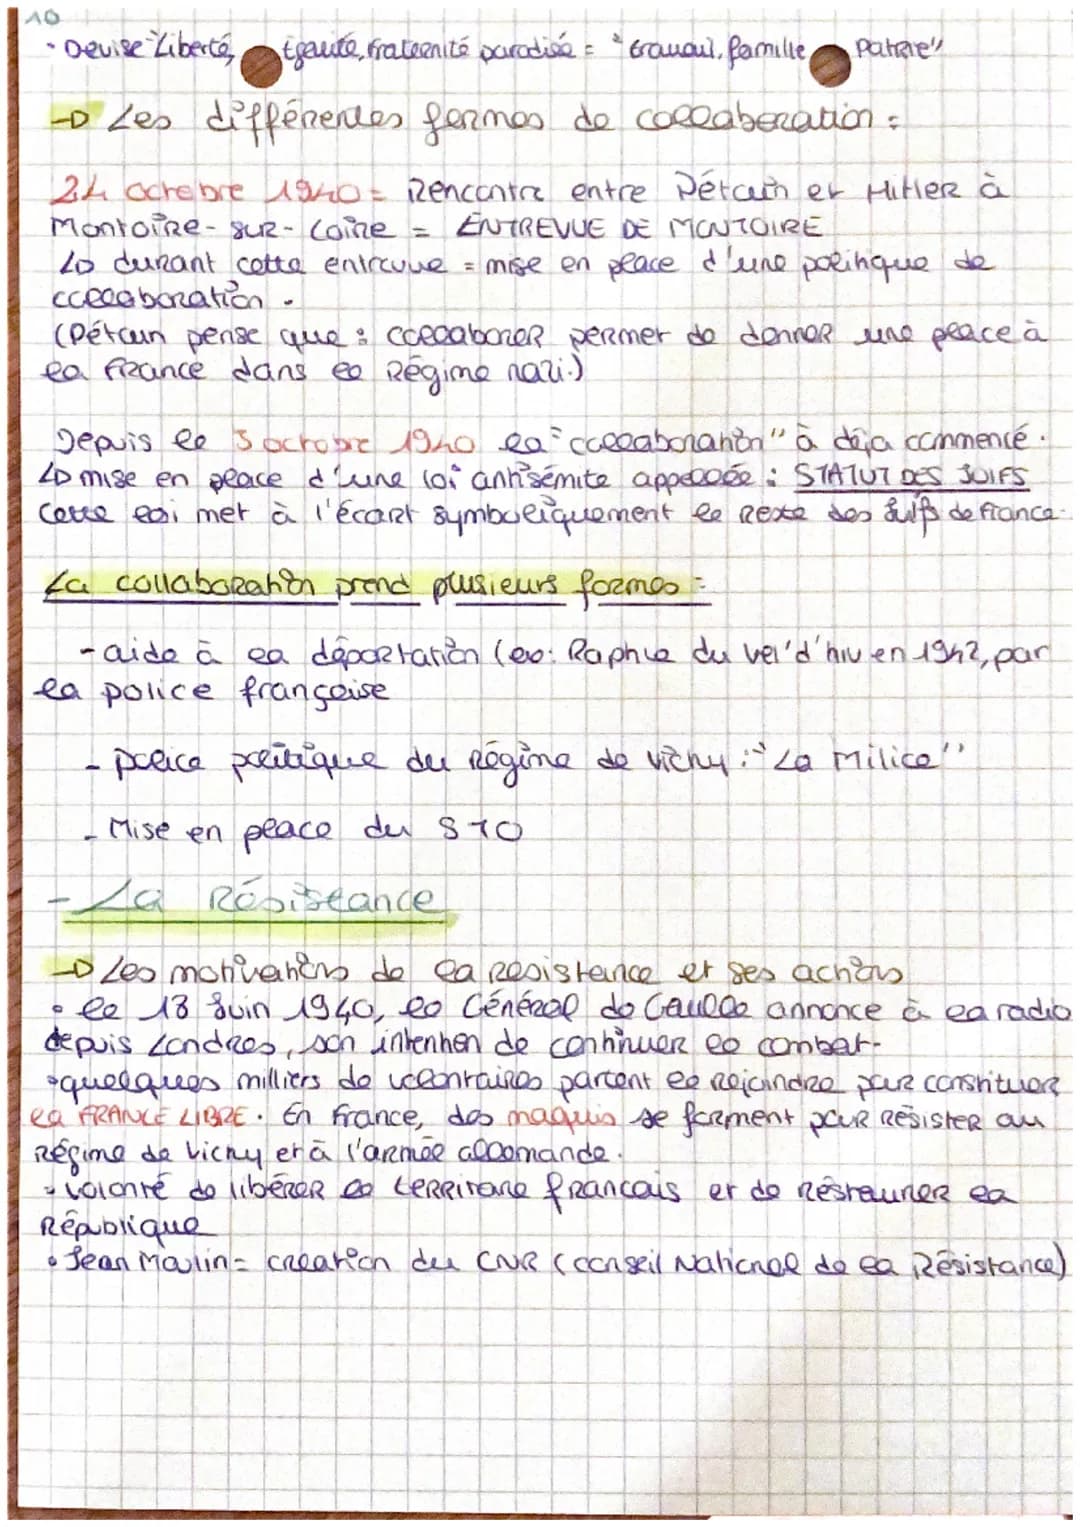 10
• Devise "Liberté, égalité, fraternité parodiée = "travail, famille, Patrie"
→ Les différentes formes de collaboration :
24 octobre 1940 = Rencontre entre Pétain et Hitler à
Montoire-sur-Loire = ENTREVUE DE MONTOIRE
↳ durant cette entrevue = mise en place d'une politique de
collaboration.
(Pétain pense que : collaborer permet de donner une place à
la France dans le Régime nazi.)
Depuis le 3 octobre 1940 la "collaboration" à déja commencé.
↳ mise en place d'une loi antisémite appellée : STATUT DES JUIFS
Cette loi met à l'écart symboliquement le reste des juifs de France.
La collaboration prend plusieurs formes :
- aide à la déportation (ex: Raphle du vel'd'hiv en 1942, par
la police française
- police politique du Régime de Vichy : "La Milice"
- Mise en place du STO
- La Résistance
→ Les motivations de la resistance et ses actions
• le 18 Juin 1940, le Général de Gaulle annonce à la radio
depuis Londres, son intention de continuer le combat.
• quelques milliers de volontaires partent le rejoindre pour constituer
la FRANCE LIBRE. En France, des maquis se forment pour résister au
Régime de Vichy et à l'armée allemande.
• volonté de libérer le territoire français et de restaurer la
République
• Jean Moulin = creation du CNR (conseil National de la Résistance)